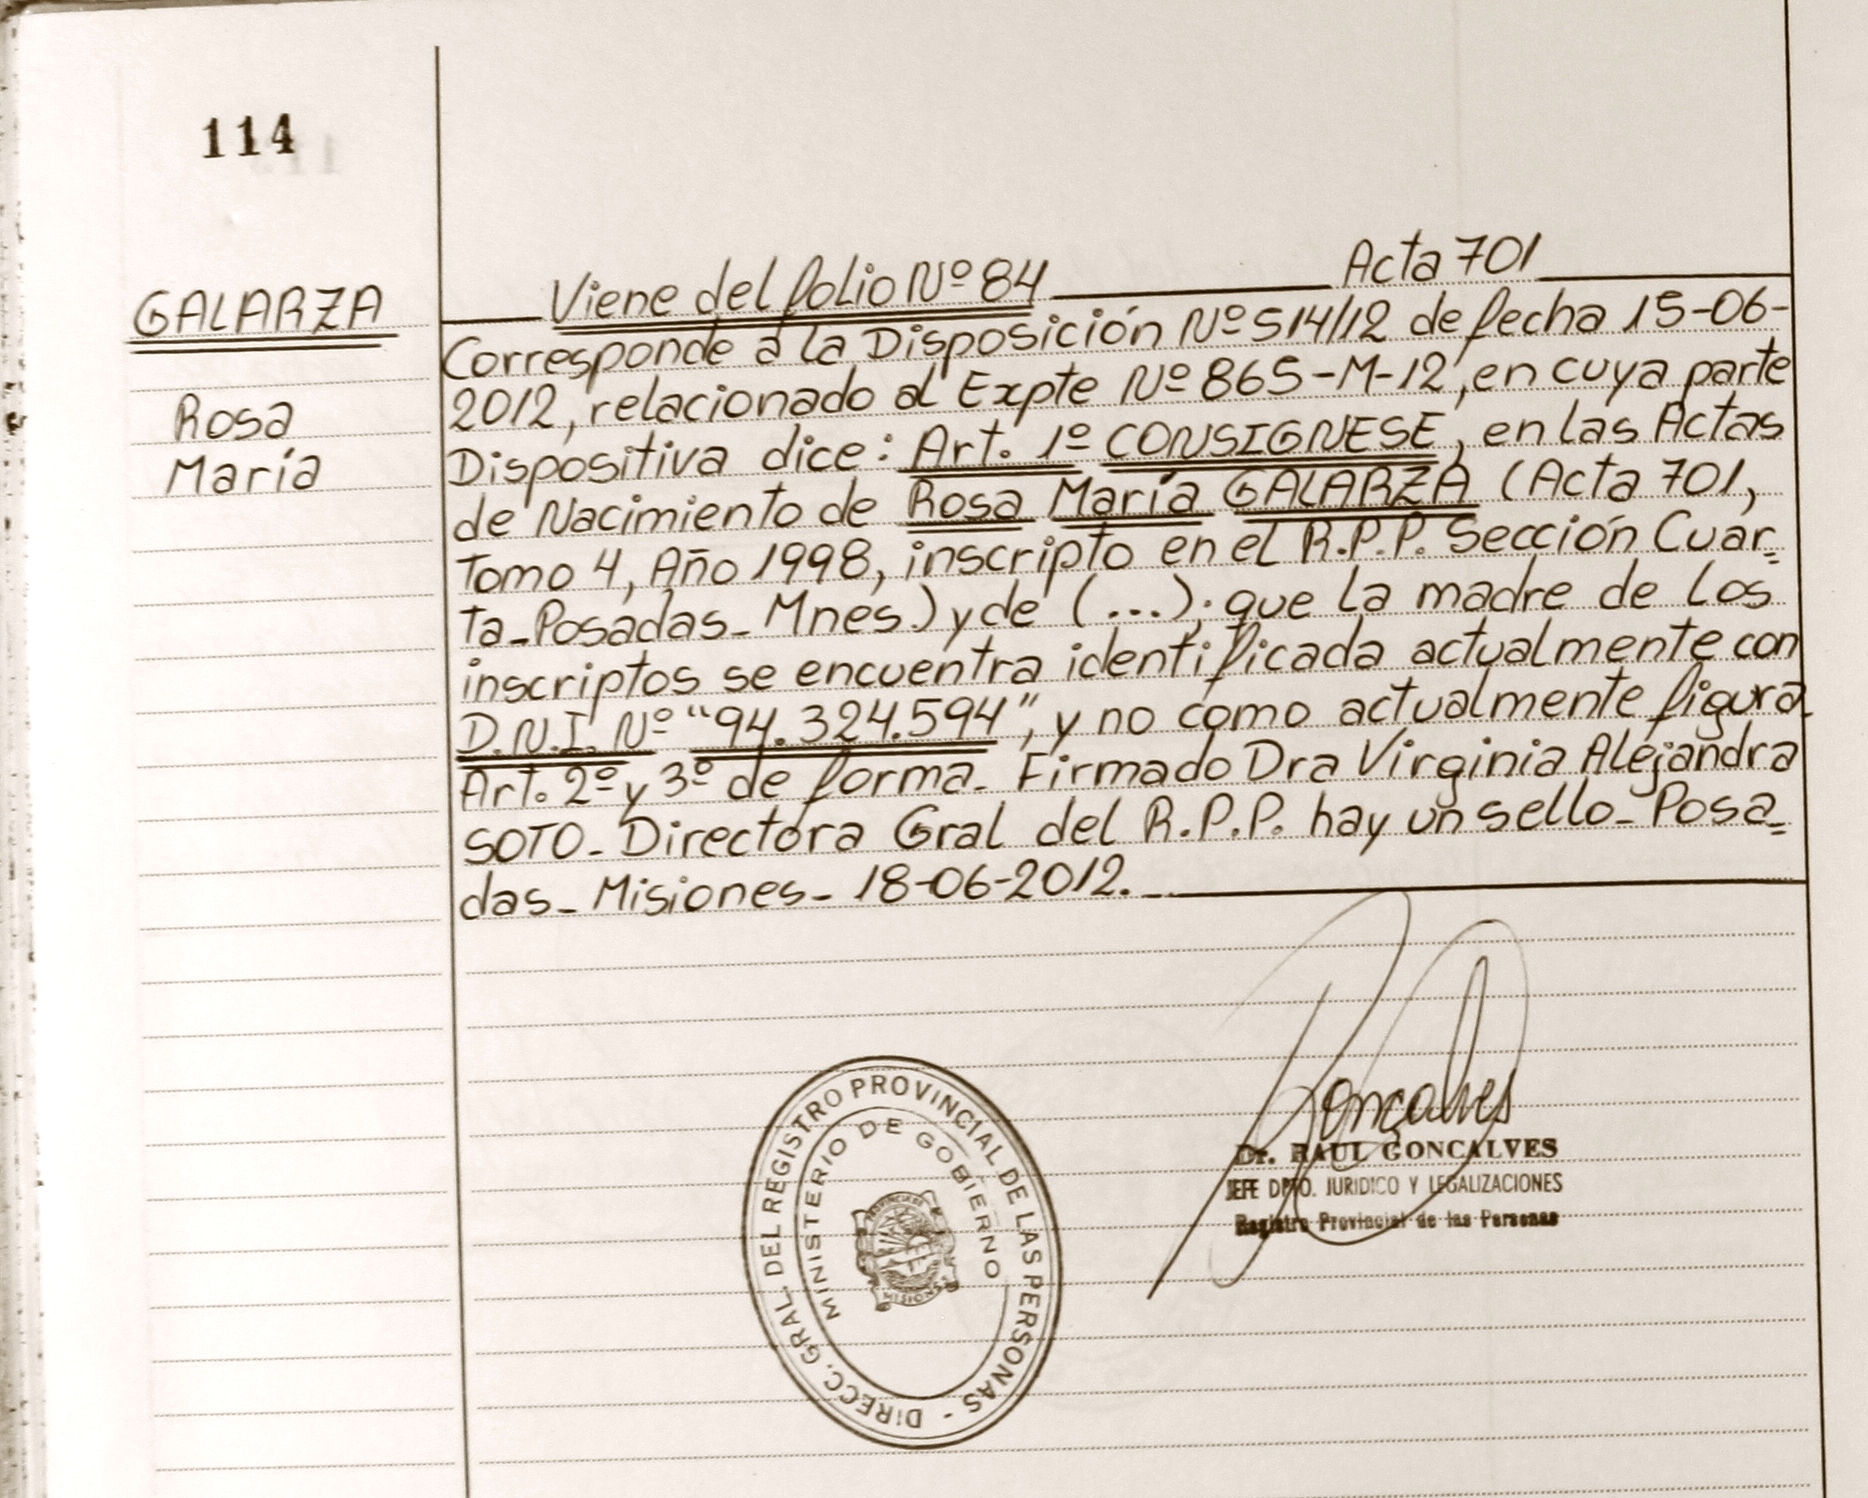 114
GALARZA
Rosa
María
Viene del folio Nº 84 Acta 701
Corresponde a la Disposición Nº 514/12 de fecha 15-06-
2012, relacionado al Expte Nº 865-M-12, en cuya parte
Dispositiva dice: Art. 1º CONSIGNESE, en las Actas
de Nacimiento de Rosa María GALARZA (Acta 701,
Tomo 4, Año 1998, inscripto en el R.P.P. Sección Cuar=
ta_Posadas_Mnes.) y de (...); que la madre de los
inscriptos se encuentra identificada actualmente con
D.N.I. Nº "94.324.594", y no como actualmente figura_
Art. 2º y 3º de forma_ Firmado Dra Virginia Alejandra
SOTO_ Directora Gral del R.P.P. hay un sello_ Posa=
das_ Misiones_ 18-06-2012._
Goncalves
Dr. RAUL GONCALVES
JEFE DPTO. JURIDICO Y LEGALIZACIONES
Registro Provincial de las Personas
DIRECC. GRAL. DEL REGISTRO PROVINCIAL DE LAS PERSONAS -
MINISTERIO DE GOBIERNO
PROVINCIA DE
MISIONES